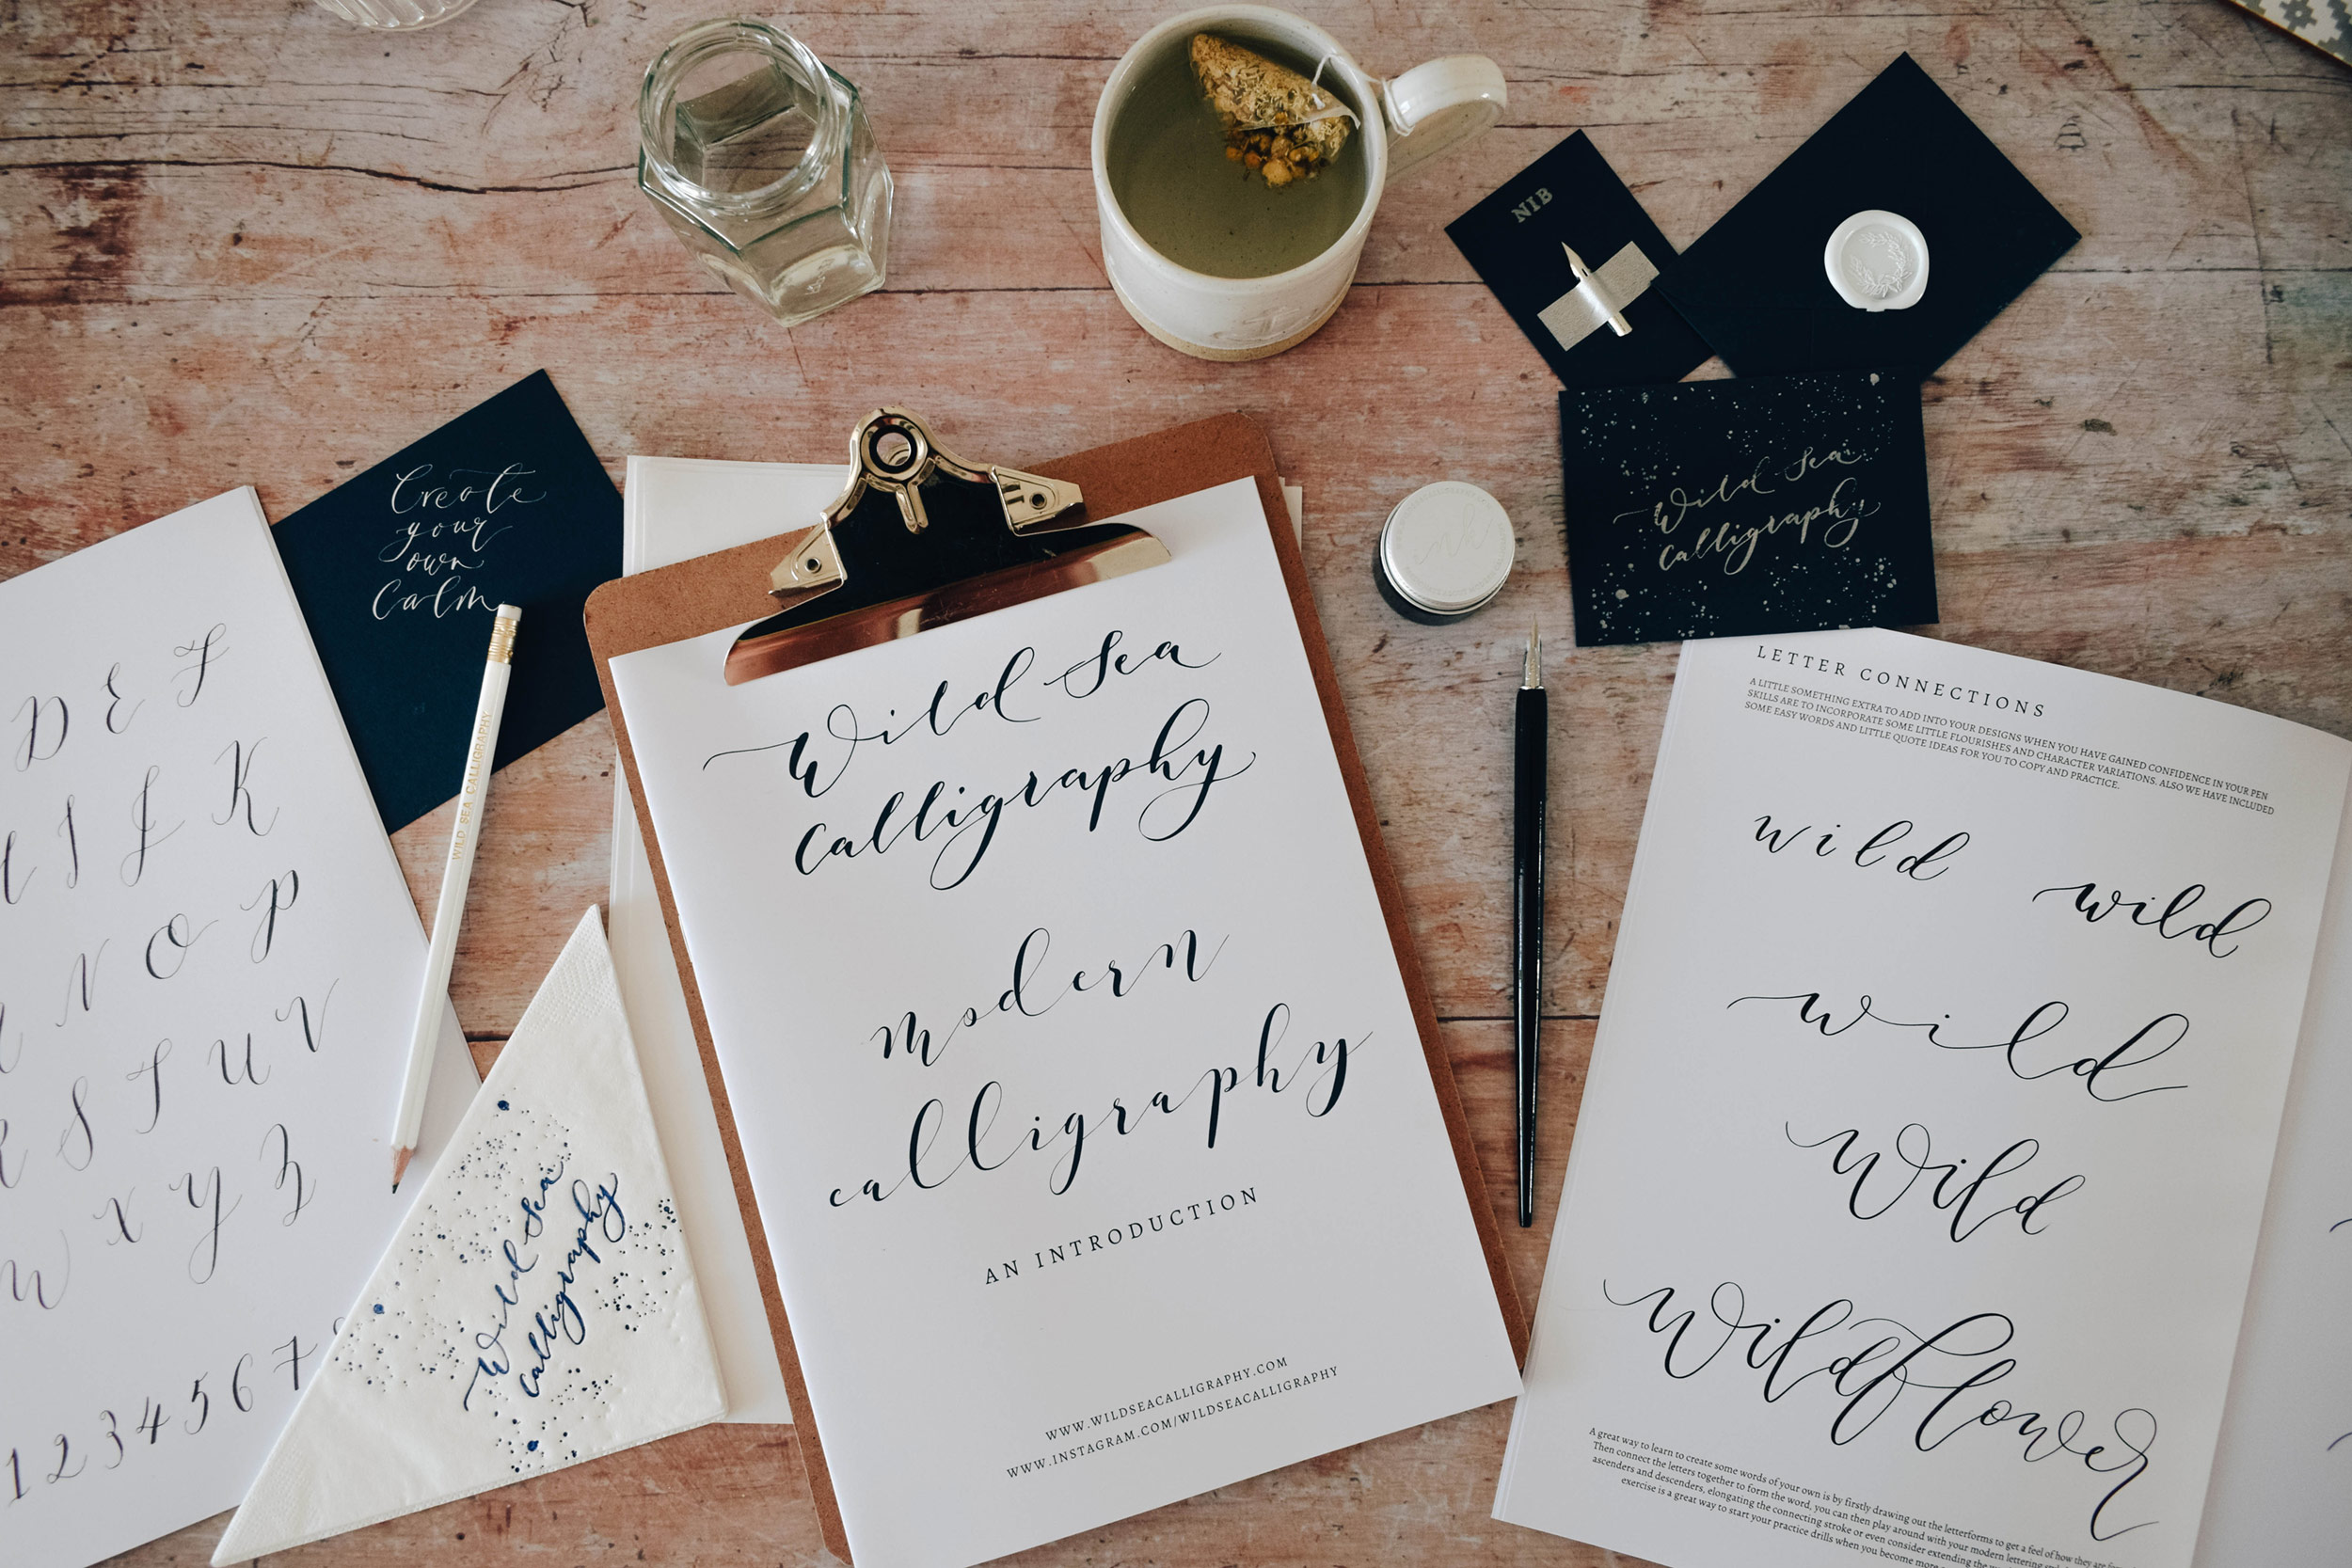 NIB
Create
your
own
Calm
Wild Sea
Calligraphy
ink
D E F
I J K
N O P
S T U V
W X Y Z
1 2 3 4 5 6 7
WILD SEA CALLIGRAPHY
Wild Sea
Calligraphy
Wild Sea
Calligraphy
modern
calligraphy
AN INTRODUCTION
WWW.WILDSEACALLIGRAPHY.COM
WWW.INSTAGRAM.COM/WILDSEACALLIGRAPHY
LETTER CONNECTIONS
A LITTLE SOMETHING EXTRA TO ADD INTO YOUR DESIGNS WHEN YOU HAVE GAINED CONFIDENCE IN YOUR PEN
SKILLS ARE TO INCORPORATE SOME LITTLE FLOURISHES AND CHARACTER VARIATIONS. ALSO WE HAVE INCLUDED
SOME EASY WORDS AND LITTLE QUOTE IDEAS FOR YOU TO COPY AND PRACTICE.
wild
wild
wild
Wild
Wildflower
A great way to learn to create some words of your own is by firstly drawing out the letterforms to get a feel of how they are
Then connect the letters together to form the word, you can then play around with your modern lettering
ascenders and descenders, elongating the connecting stroke or even consider extending the
exercise is a great way to start your practice drills when you become more